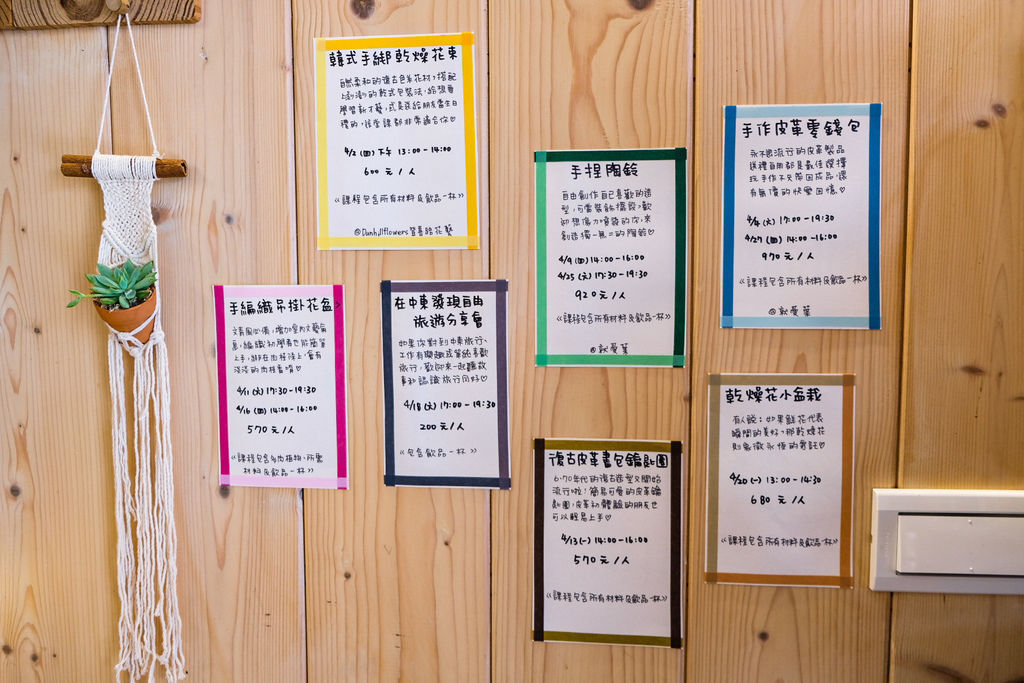 韓式手綁乾燥花束
自然柔和的復古色系花材，搭配
上澎澎的韓式包裝法，給想要
學習新才藝，或是送給朋友當生日
禮的，這堂課都非常適合你♡
4/2 (日) 下午 13:00-14:00
600元/人
<<課程包含所有材料及飲品一杯>>
手編織吊掛花盆
上手，綁在肉枝條上，會有
4/11 (火) 17:30-19:30
4/16 (日) 14:00-16:00
570元/人
<<課程包含多肉植物、所需
材料及飲品一杯>>
在中東發現自由
旅遊分享會
如果你對到中東旅行、
工作有興趣或單純喜歡
旅行，歡迎來一起聽故
事和認識旅行同好♡
4/18 (火) 17:00-19:30
200元/人
<<包含飲品一杯>>
手捏陶鈴
自由創作自己喜歡的造
型，可當裝飾擺設，歡
迎想像力豐富的你，來
創造獨一無二的陶鈴♡
4/9 (日) 14:00-16:00
4/25 (火) 17:30-19:30
920元/人
<<課程包含所有材料及飲品一杯>>
復古皮革書包鑰匙圈
6.70年代的復古造型又開始
流行啦，簡易可愛的皮革鑰
匙圈，皮革初體驗的朋友也
可以輕易上手♡
4/13(一) 14:00-16:00
570元/人
<<課程包含所有材料及飲品一杯>>
手作皮革零錢包
永不退流行的皮革製品
送禮自用都是最佳選擇
玩手作不只帶回成品，還
有無價的快樂回憶♡
4/4 (火) 17:00-19:30
4/27 (日) 14:00-16:00
970元/人
<<課程包含所有材料及飲品一杯>>
乾燥花小盆栽
有人說：如果鮮花代表
瞬間的美好，那乾燥花
則象徵永恆的實話♡
4/20(一) 13:00-14:30
680元/人
<<課程包含所有材料及飲品一杯>>